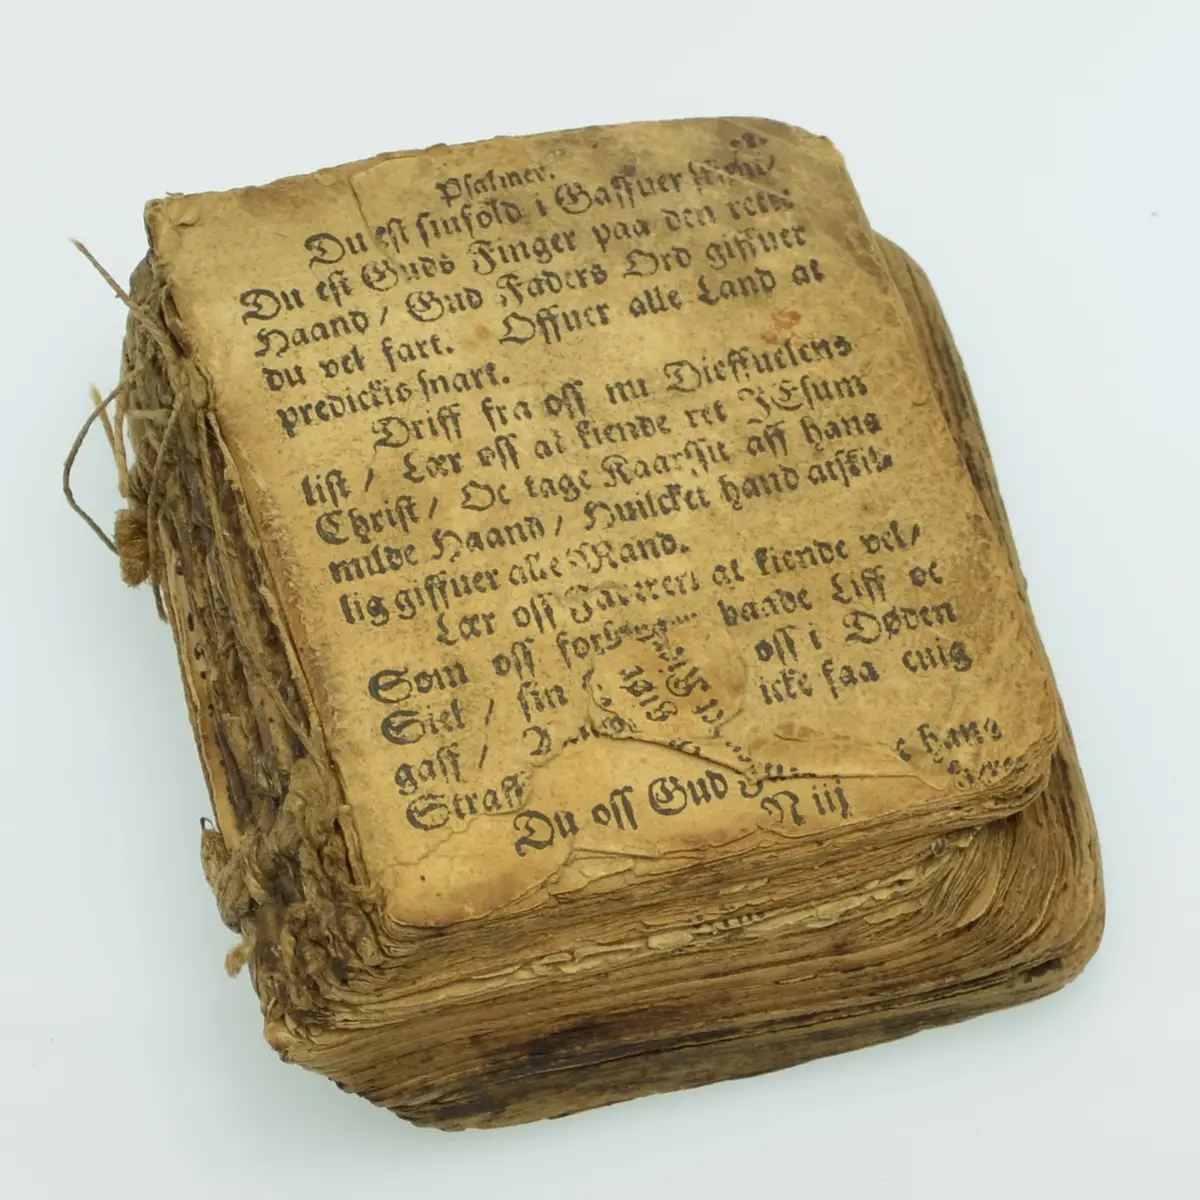 Psalmer.
Du est siufold i Gaffuer
Du est Guds Finger paa den rette
Haand / Gud Faders Ord giffuer
du vel fart. Offuer alle Land at
predickis snart.
Driff fra oss nu Dieffuelens
list / Lær oss at kiende ret JEsum
Christ / Oc tage Kaarssit aff hans
milde Haand / Huilcket hand atskil-
lig giffuer alle Mand.
Lær oss Faderen at kiende vel /
Som oss baade Liff oc
Siel / sin oss i Døden
gaff / icke faa euig
Straff hans
Du oss Gud
N iij